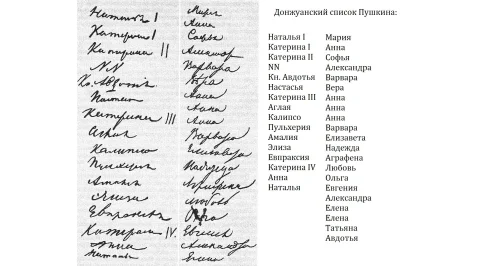 Наталья I
Катерина I
Катерина II
NN
Кн. Авдотья
Настасья
Катерина III
Аглая
Калипсо
Пулхерия
Амалия
Элиза
Евпраксея
Катерина IV.
Анна
Наталья
Мария
Анна
Софья
Александра
Варвара
Вера
Анна
Анна
Анна
Варвара
Елизавета
Надежда
Аграфена
Любовь
Ольга
Евгения
Александра
Елена
Донжуанский список Пушкина:
Наталья I
Катерина I
Катерина II
NN
Кн. Авдотья
Настасья
Катерина III
Аглая
Калипсо
Пульхерия
Амалия
Элиза
Евпраксия
Катерина IV
Анна
Наталья
Мария
Анна
Софья
Александра
Варвара
Вера
Анна
Анна
Анна
Варвара
Елизавета
Надежда
Аграфена
Любовь
Ольга
Евгения
Александра
Елена
Елена
Татьяна
Авдотья